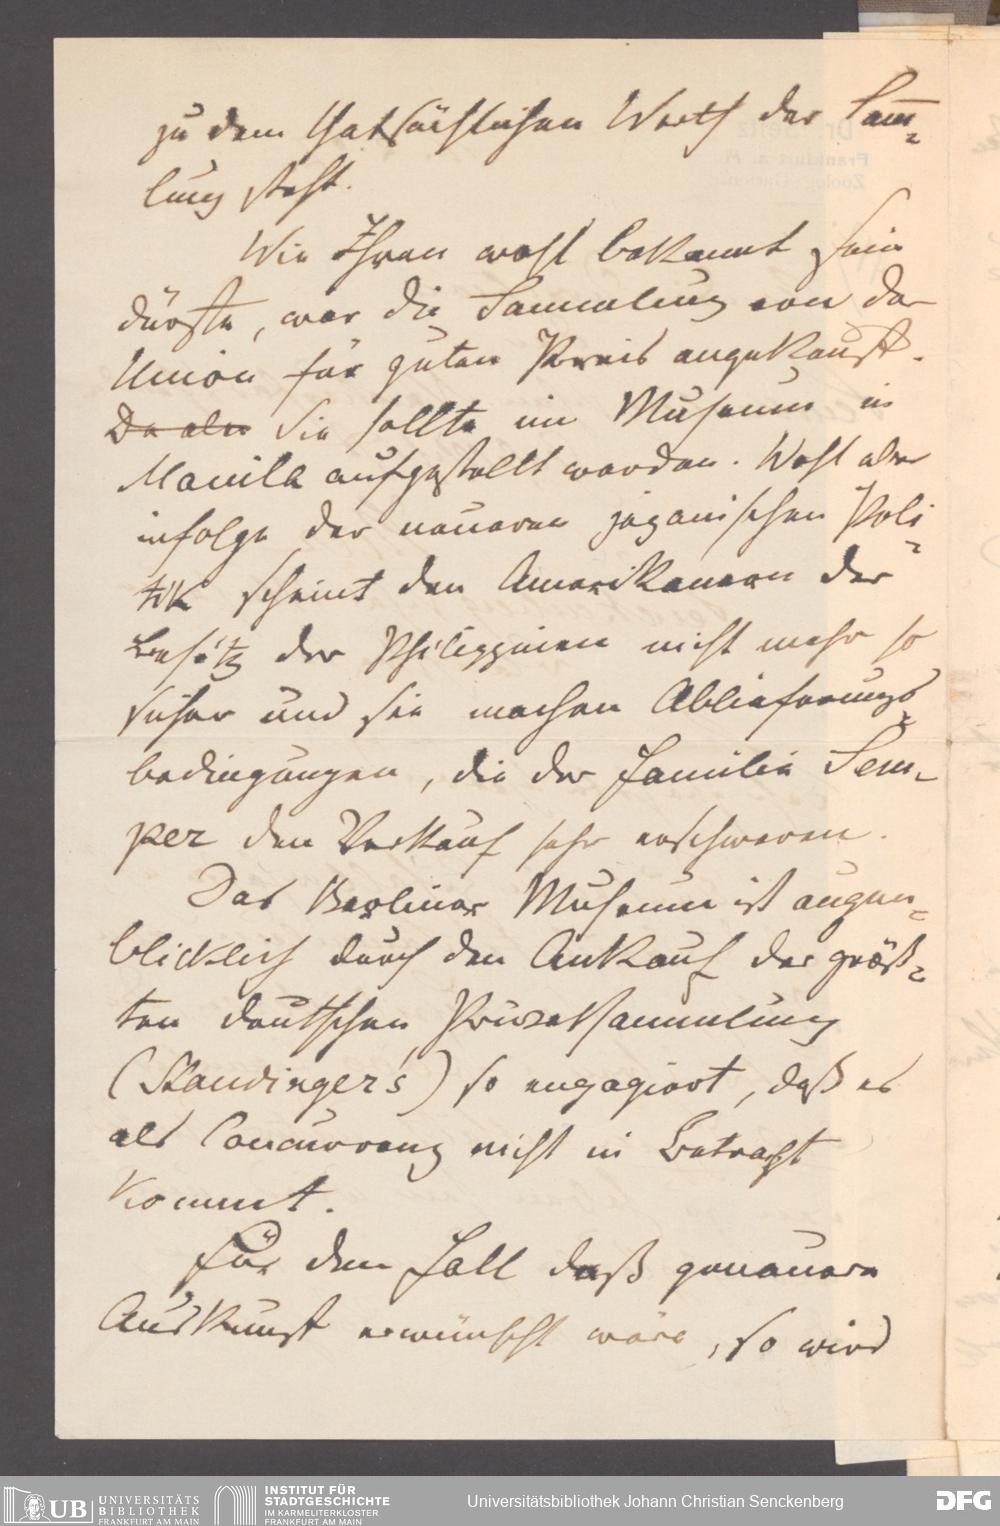 zu dem thatsächlichen Werth der Sam̅-
lung steht.
Wie Ihnen wohl bekannt sein
dürfte, war die Sammlung von der
Union für guten Preis angekauft.
Da aber Sie sollte im Museum in
Manila aufgestellt werden. Wohl aber
infolge der neueren japanischen Poli-
tik scheint den Amerikanern der
Besitz der Philippinen nicht mehr so
sicher und sie machen Ablieferungs-
bedingungen, die der Familie Sem-
per den Verkauf sehr erschweren.
Das Berliner Museum ist augen-
blicklich durch den Ankauf der größ-
ten deutschen Privatsammlung
(Staudinger's) so engagiert, daß es
als Concurrenz nicht in Betracht
kommt.
Für den Fall daß genauere
Auskunft erwünscht wäre, so wird
UB UNIVERSITÄTS
BIBLIOTHEK
FRANKFURT AM MAIN
INSTITUT FÜR
STADTGESCHICHTE
IM KARMELITERKLOSTER
FRANKFURT AM MAIN
Universitätsbibliothek Johann Christian Senckenberg
DFG